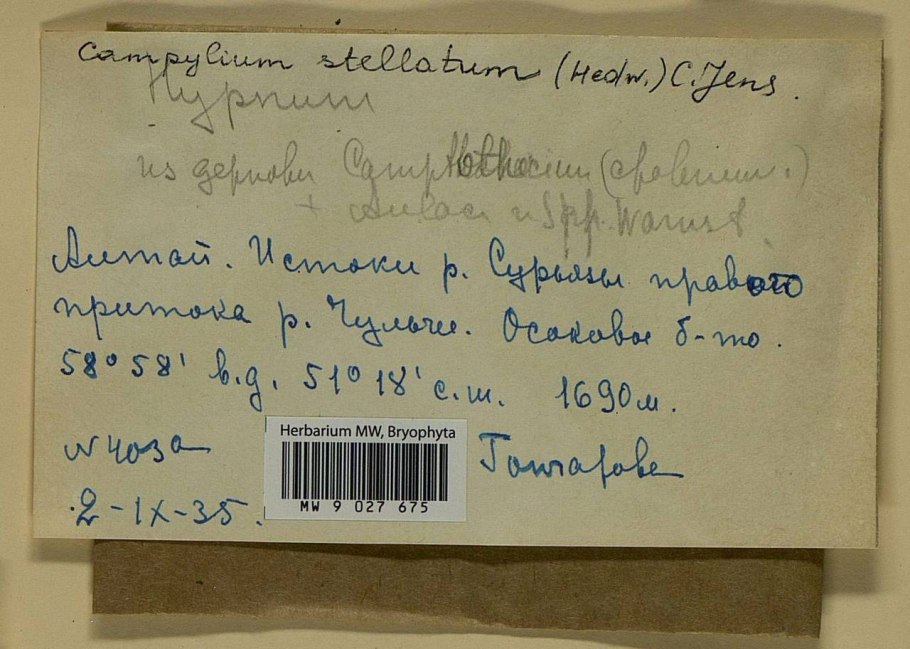 Campylium stellatum (Hedw.) C. Jens.
Hypnum
из дерновин
+ и Spp. Warnst.
Алтай. Истоки р. Сурьязы правого
притока р. Чульчи. Осоковое б-то.
58° 58' в.д. 51° 18' с.ш. 1690 м.
N 403а
2-IX-35.
Гончарова
Herbarium MW, Bryophyta
MW 9 027 675